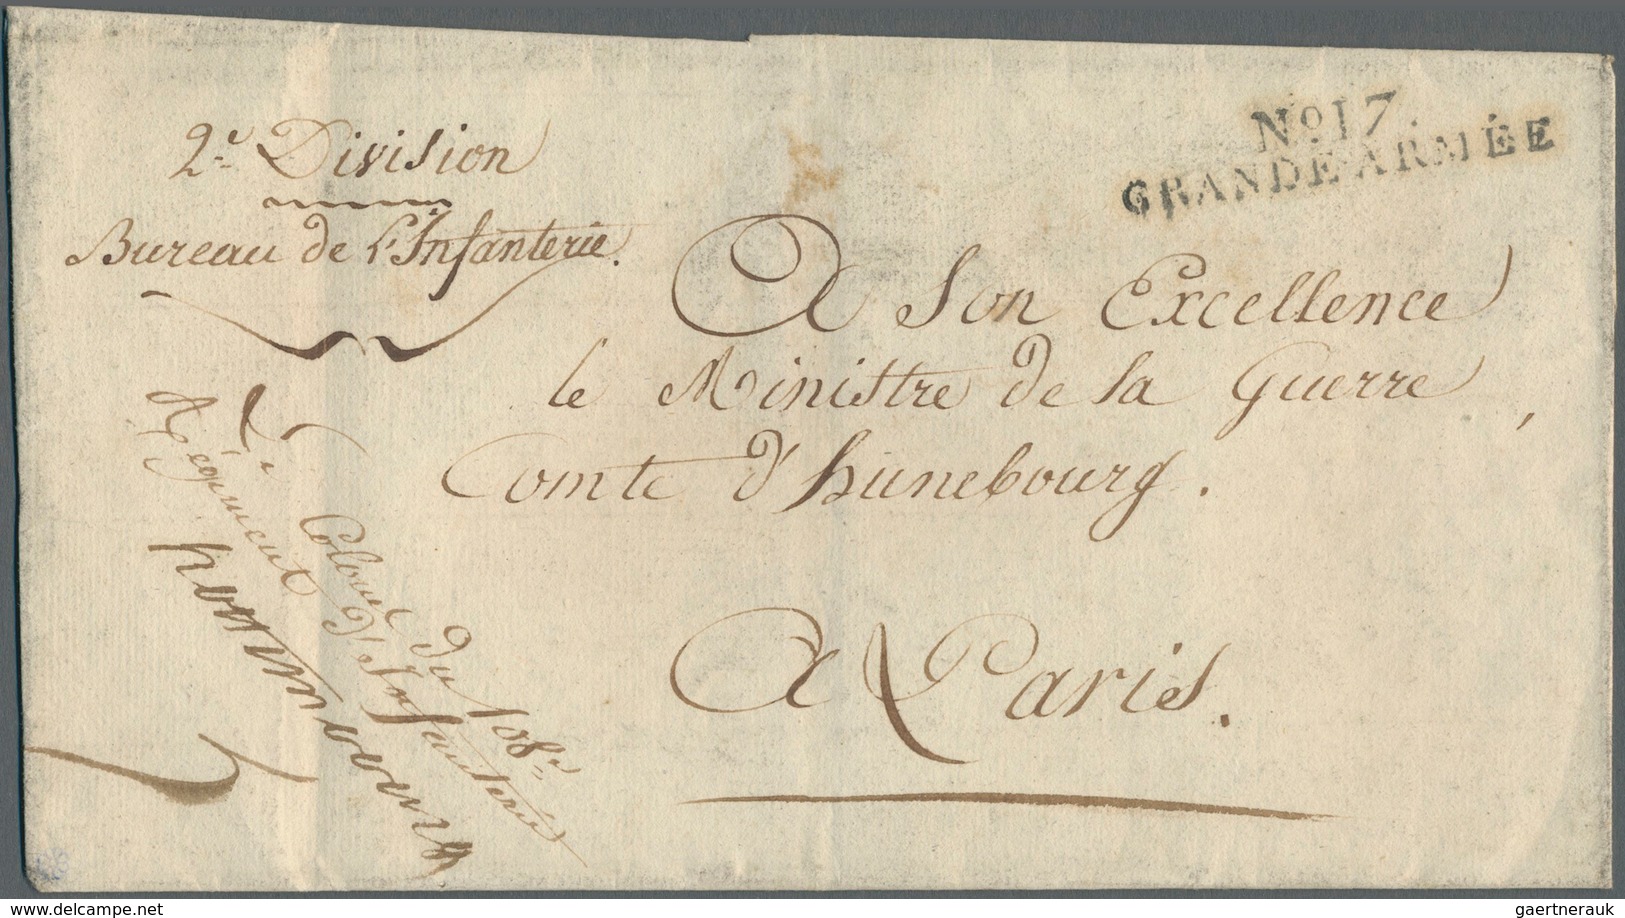 2e. Division
Bureau de l'Infanterie.
No. 17.
GRANDE-ARMÉE
A Son Excellence
le Ministre de la Guerre,
Comte d'hunebourg.
A Paris.
Le Colonel du 108e.
Régiment d'Infanterie
delcampe.net
gaertnerauk